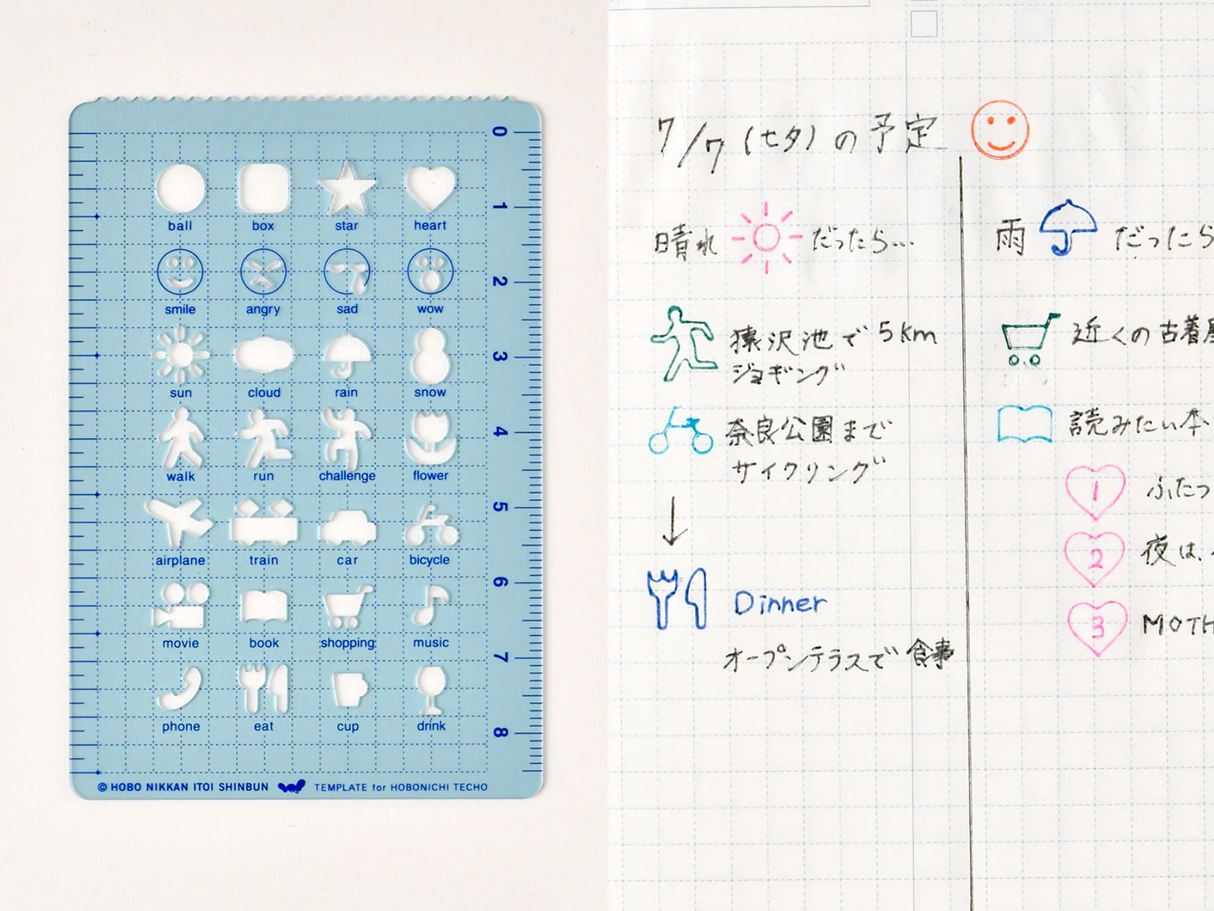 0
1
2
3
4
5
6
7
8
ball box star heart
smile angry sad wow
sun cloud rain snow
walk run challenge flower
airplane train car bicycle
movie book shopping music
phone eat cup drink
© HOBO NIKKAN ITOI SHINBUN TEMPLATE for HOBONICHI TECHO
7/7(七夕)の予定
晴れ だったら…
猿沢池で 5km
ジョギング
奈良公園まで
サイクリング
Dinner
オープンテラスで 食事
雨 だったら
近くの古着屋
読みたい本
1 ふたつ
2 夜は、
3 MOTH